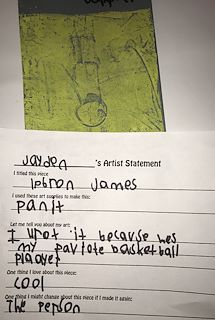 Jayden 's Artist Statement
I titled this piece
lebron James
I used these art supplies to make this:
panit
Let me tell you about my art:
I wrot it becarse hes
my paviote basketball
plaoyer
One thing I love about this piece:
cool
One thing I might change about this piece if I made it again:
The person